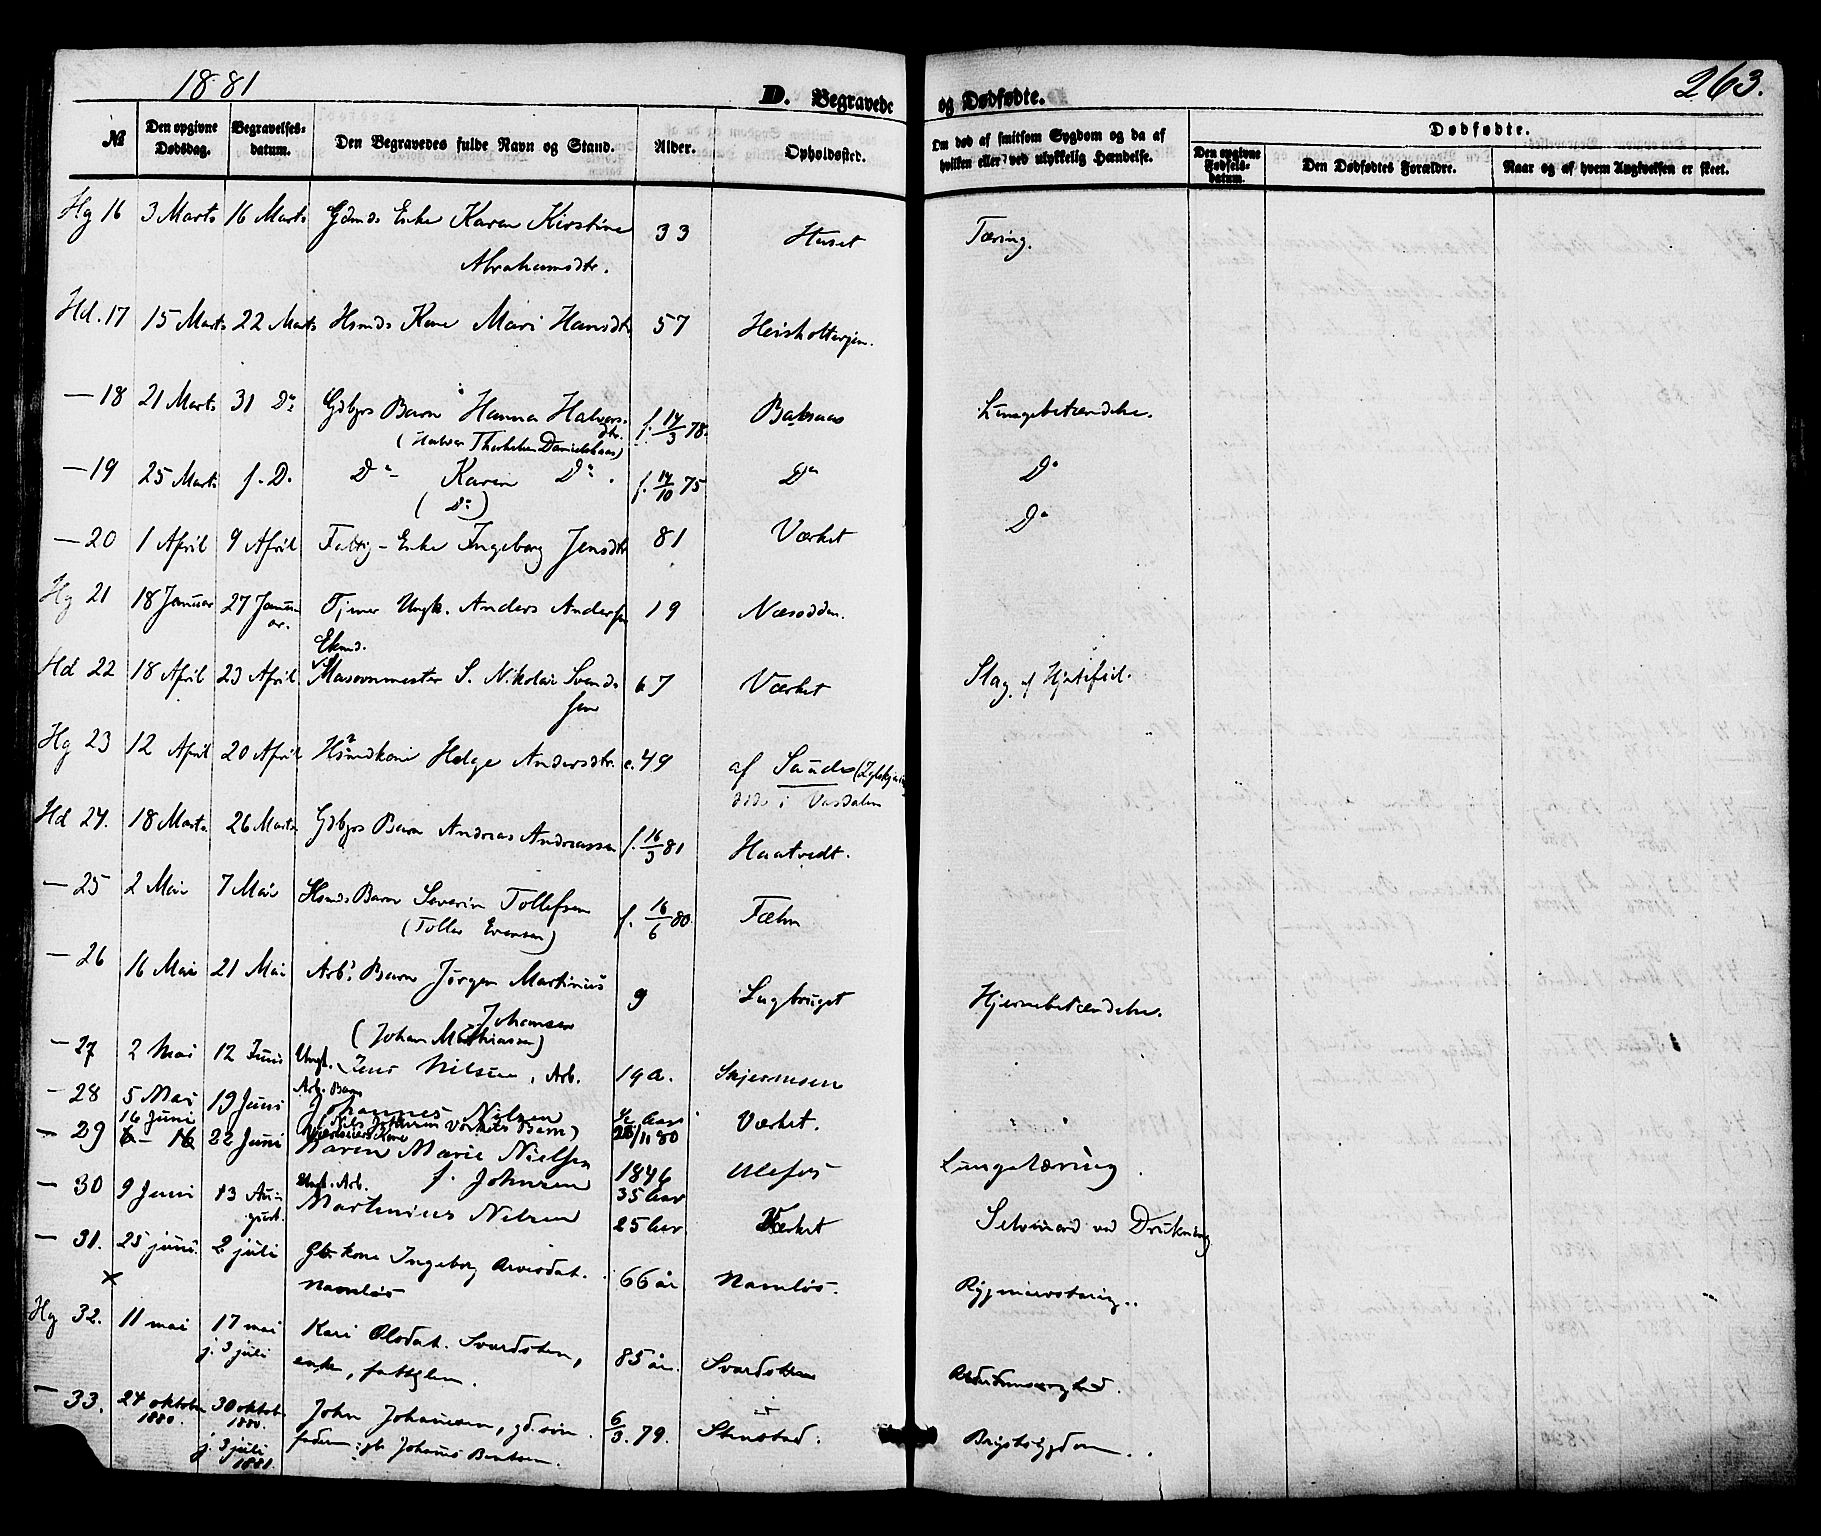 1881
263.
D. Begravede og Dødfødte.
№ Den opgivne Dødsdag. Begravelses-datum. Den Begravedes fulde Navn og Stand. Alder. Opholdssted. Om død af smitsom Sygdom og da af hvilken eller ved ulykkelig Hændelse. Dødfødte.
Den opgivne Fødsels-datum. Den Dødfødtes Forældre. Naar og af hvem Angivelsen er skeet.
Hg 16 3 Marts 16 Marts Gdmds Enke Karen Kirstine 33 Huset Tæring.
Abrahamsdtr.
Hd. 17 15 Marts 22 Marts Hsmds Kone Mari Hansdtr 57
— 18 21 Marts 31 Do Gdbrs Barn Hanna Halvors- f. 14/3 78. Baksaas Lungebetændelse.
dtr.
(Halvor Thorkelsen Danielsbaas)
— 19 25 Marts f. D. Do Karen Do. f. 14/10 75 Do Do
(Do)
— 20 1 April 9 April Fattig-Enke Ingeborg Jensdtr 81 Værket Do
Hg 21 18 Januar 27 Januar. Tjener Ungk. Anders Andersen 19 Næsodden.
Hd 22 18 April 23 April Masovnmester S. Nikolai Svend- 67 Værket Slag og Hjertefeil.
sen
Hg 23 12 April 20 April Hsmdkone Helge Andersdtr. c. 49 af Saude
døde i Vasdalen
Hd 24. 18 Marts 26 Marts Gdbrs Barn Andreas Andreassen f. 16/3 81 Haatvedt.
— 25 2 Mai 7 Mai Hsmds Barn Severin Tollefsen f. 16/6 80. Fæhn
(Tollef Evensen)
— 26 16 Mai 21 Mai Arbs Barn Jørgen Martinius 9 Sagbruget Hjernebetændelse.
Johansen
(Johan Mathiasen)
— 27 2 Mai 12 Juni Ungk. Jens Nilsen, Arb. 19 a. Skjermoen
— 28 5 Mai 19 Juni Arb. Barn Johannes Nilsen ½ Aar Værket.
— 29 16 Juni 22 Juni Karen Marie Nielsen 1846 Ulefos Lungetæring.
f. Johnsen 35 Aar
— 30 9 Juni 13 August. Ungk. Arb. Martinius Nilsen 25 Aar Værket Selvmord ved Drukning
— 31. 25 juni. 2 juli Gbr kone Ingeborg Arvesdat. 66 år Namløs.
Namløs
×
Hg 32. 11 mai 17 mai Kari Olsdat. Svardsten, 85 år. Svardsten
j. 3 juli enke, fattiglem.
— 33. 24 oktober 30 oktob. John Johannsen, gd.søn. 6/3. 79. Stenstad. Brystsygdom.
1880. 1880. faderen: gb Johannes Bentsen.
j. 3 juli
1881.